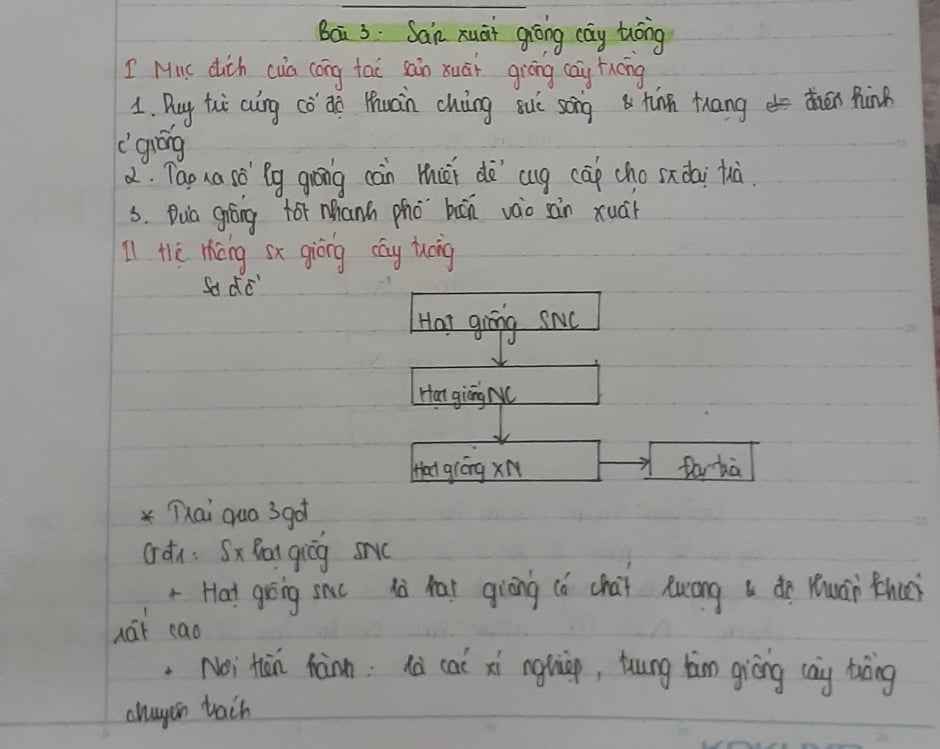 Bài 3: Sản xuất giống cây trồng
I Mục đích của công tác sản xuất giống cây trồng
1. Duy trì củng cố độ thuần chủng sức sống & tính trạng điển hình
c' giống
2. Tạo ra số lg giống cần thiết để cug cấp cho sx đại trà.
3. Đưa giống tốt nhanh phổ biến vào sản xuất
II Hệ thống sx giống cây trồng
Sơ đồ
Hạt giống SNC
Hạt giống NC
Hạt giống XN
Đại trà
* Trải qua 3 gđ
Gđ1: Sx hạt giốg SNC
+ Hạt giống SNC là hạt giống có chất lượng & độ thuần khiết
rất cao
+ Nơi tiến hành: là các xí nghiệp, trung tâm giống cây trồng
chuyên trách